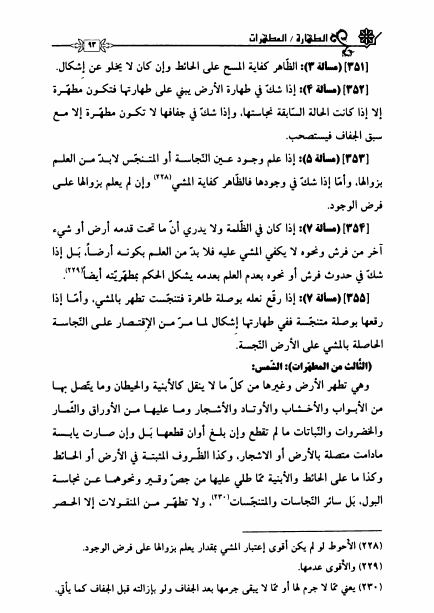 الطهارة / المطهرات
٩٣
[٣٥١] (مسألة ٣): الظّاهر كفاية المسح على الحائط وإن كان لا يخلو عن إشكال.
[٣٥٢] (مسألة ٤): إذا شكّ في طهارة الأرض يبني على طهارتها فتكون مطهّرة
إلا إذا كانت الحالة السّابقة نجاستها، وإذا شكّ في جفافها لا تكون مطهّرة إلا مع
سبق الجفاف فيستصحب.
[٣٥٣] (مسألة ٥): إذا علم وجود عين النّجاسة أو المتنجّس لابدّ من العلم
بزوالها، وأمّا إذا شكّ في وجودها فالظّاهر كفاية المشي(٢٢٨) وإن لم يعلم بزوالها على
فرض الوجود.
[٣٥٤] (مسألة ٧): إذا كان في الظّلمة ولا يدري أنّ ما تحت قدمه أرض أو شيء
آخر من فرش ونحوه لا يكفي المشي عليه فلا بدّ من العلم بكونه أرضاً، بل إذا
شكّ في حدوث فرش أو نحوه بعدم العلم بعدمه يشكل الحكم بمطهّريّته أيضاً(٢٢٩).
[٣٥٥] (مسألة ٧): إذا رقّع نعله بوصلة طاهرة فتنجّست تطهر بالمشي، وأمّا إذا
رقعها بوصلة متنجّسة ففي طهارتها إشكال لما مرّ من الإقتصار على النّجاسة
الحاصلة بالمشي على الأرض النّجسة.
(الثّالث من المطهّرات): الشّمس:
وهي تطهر الأرض وغيرها من كلّ ما لا ينقل كالأبنية والحيطان وما يتّصل بها
من الأبواب والأخشاب والأوتاد والأشجار وما عليها من الأوراق والثّمار
والخضروات والنّباتات ما لم تقطع وإن بلغ أوان قطعها بل وإن صارت يابسة
مادامت متصلة بالأرض أو الاشجار، وكذا الظّروف المثبتة في الأرض أو الحائط
وكذا ما على الحائط والأبنية ممّا طلي عليها من جصّ وقير ونحوهما عن نجاسة
البول، بل سائر النّجاسات والمتنجّسات(٢٣٠)، ولا تطهّر من المنقولات إلا الحصر
(٢٢٨) الأحوط لو لم يكن أقوى إعتبار المشي بمقدار يعلم بزوالها على فرض الوجود.
(٢٢٩) والأقوى عدمها.
(٢٣٠) يعني ممّا لا جرم لها أو ممّا لا يبقى جرمها بعد الجفاف ولو بإزالته قبل الجفاف كما يأتي.